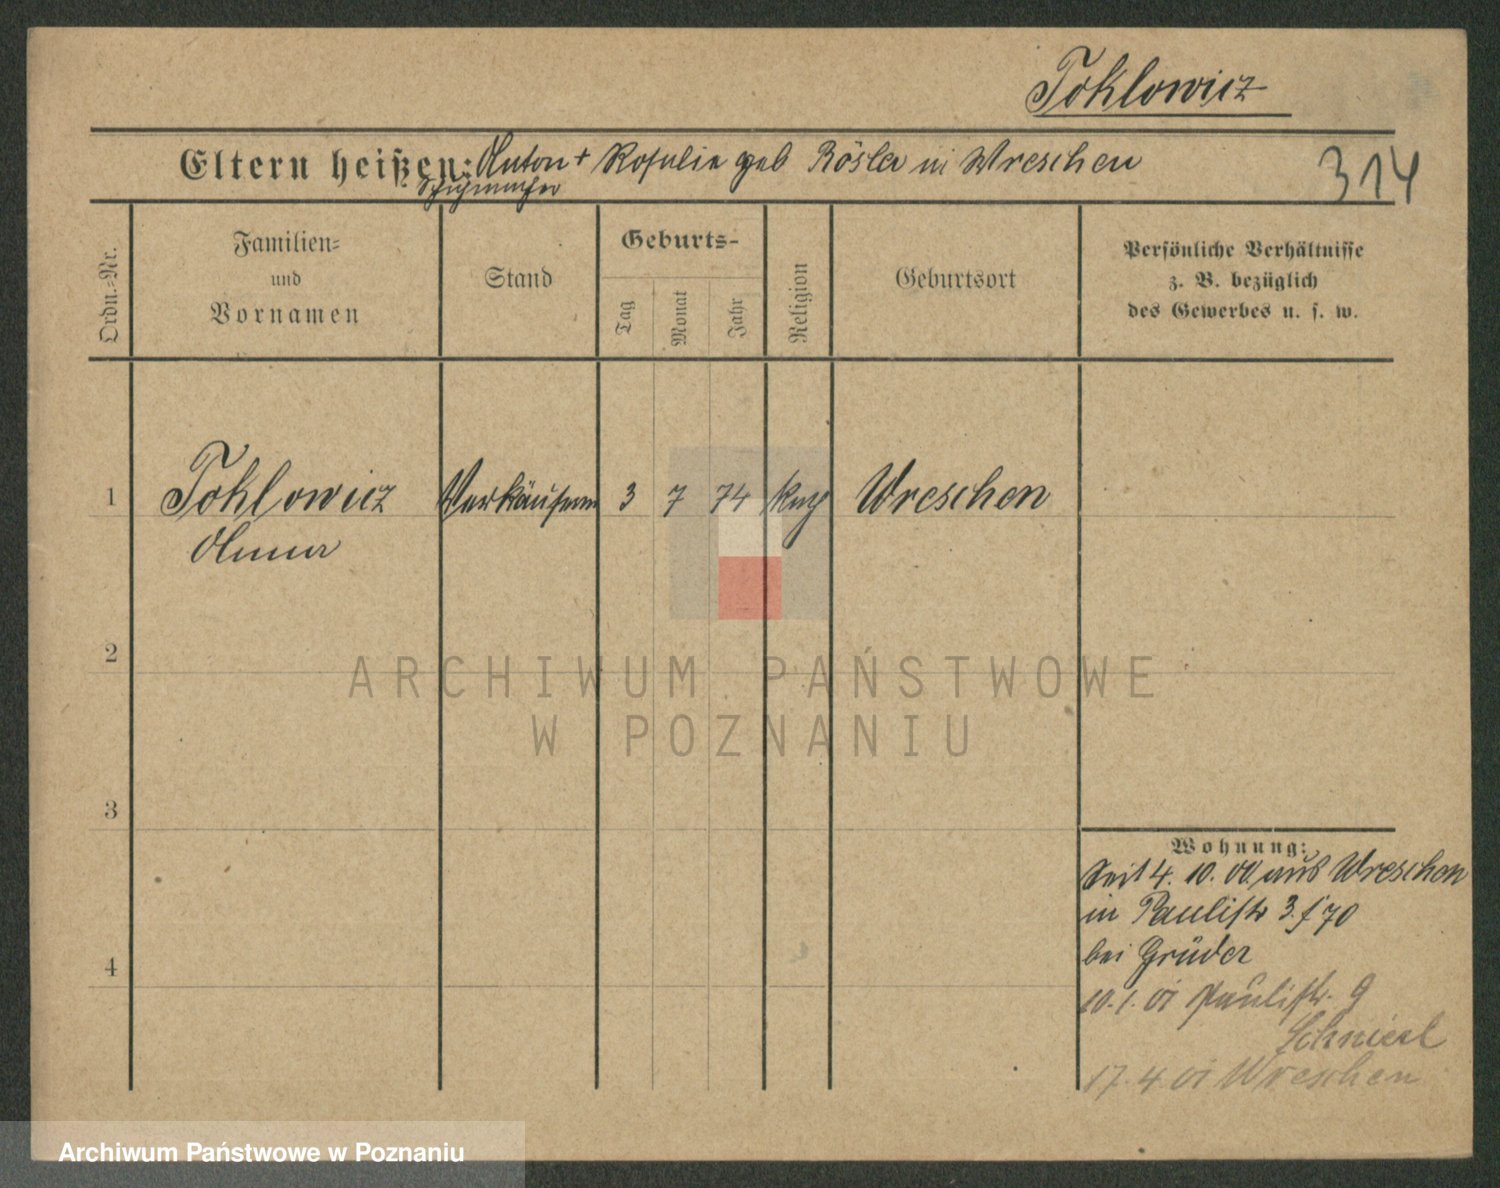 Toklowicz
Eltern heißen: Anton + Rosalie geb Rösler in Wreschen
Schuhmacher
314
Ordn.-Nr.
Familien-
und
Vornamen
Stand
Geburts-
Tag
Monat
Jahr
Religion
Geburtsort
Persönliche Verhältnisse
z. B. bezüglich
des Gewerbes u. s. w.
1 Toklowicz Verkäuferin 3 7 74 Wreschen
Anna
2
ARCHIWUM PAŃSTWOWE
W POZNANIU
3
Wohnung:
Seit 4. 10. 00 aus Wreschen
in Paulistr 3. f 70
bei Grüder
4
10. 1. 01 Paulistr. 9
17. 4. 01 Wreschen
Archiwum Państwowe w Poznaniu